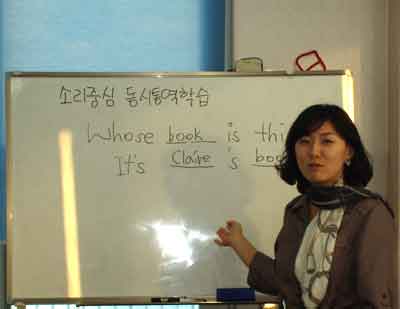 소리중심 동시통역학습
Whose book is thi
It's Claire 's boo